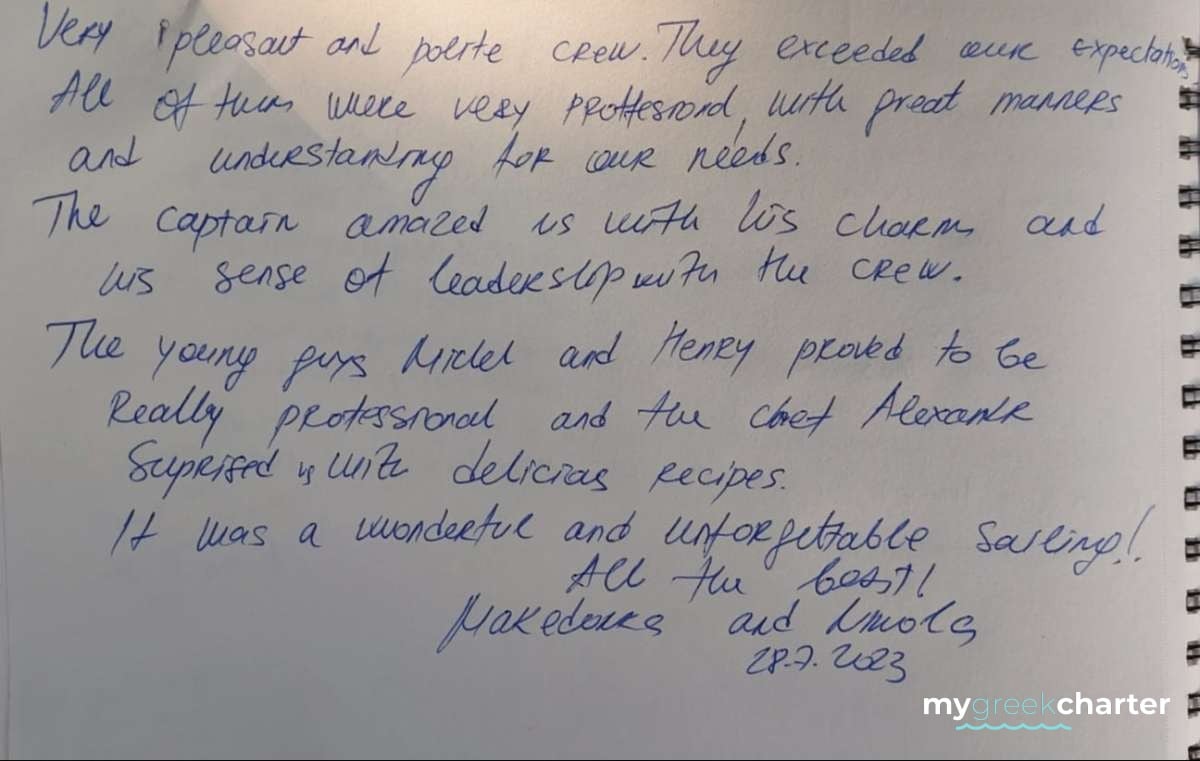 Very pleasant and polite crew. They exceeded our expectations
All of them were very proffesional, with great manners
and understanding for our needs.
The captain amazed us with his charm and
his sense of leadership with the crew.
The young guys and Henry proved to be
Really professional and the chef Alexandr
Suprised us with delicias recipes.
It was a wonderful and unforgettable Sailing!
All the best!
Makedonka and Nikola
28.7.2023
mygreekcharter